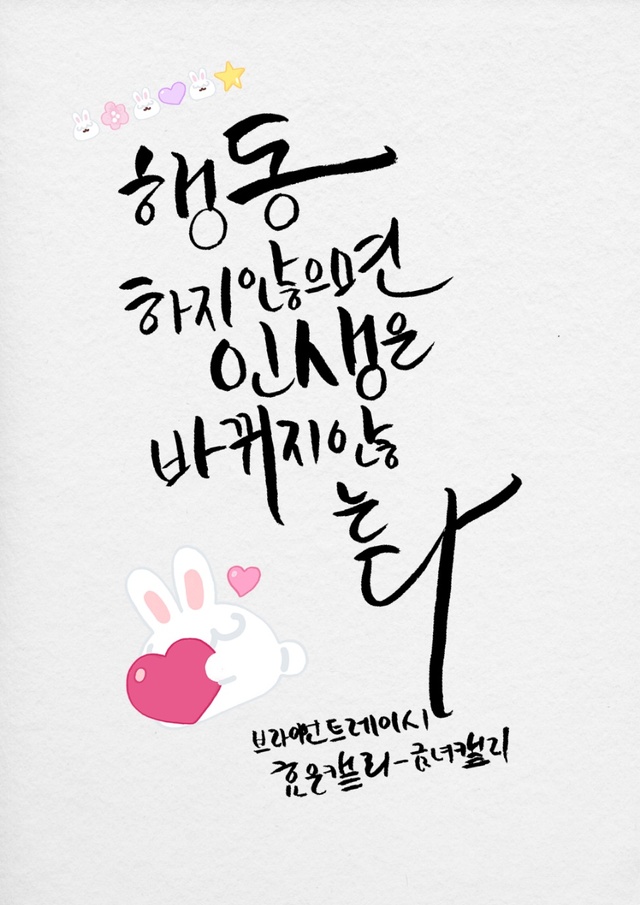 행동
하지않으면
인생은
바뀌지않
는다
브라이언트레이시
효은캘리-금녀캘리